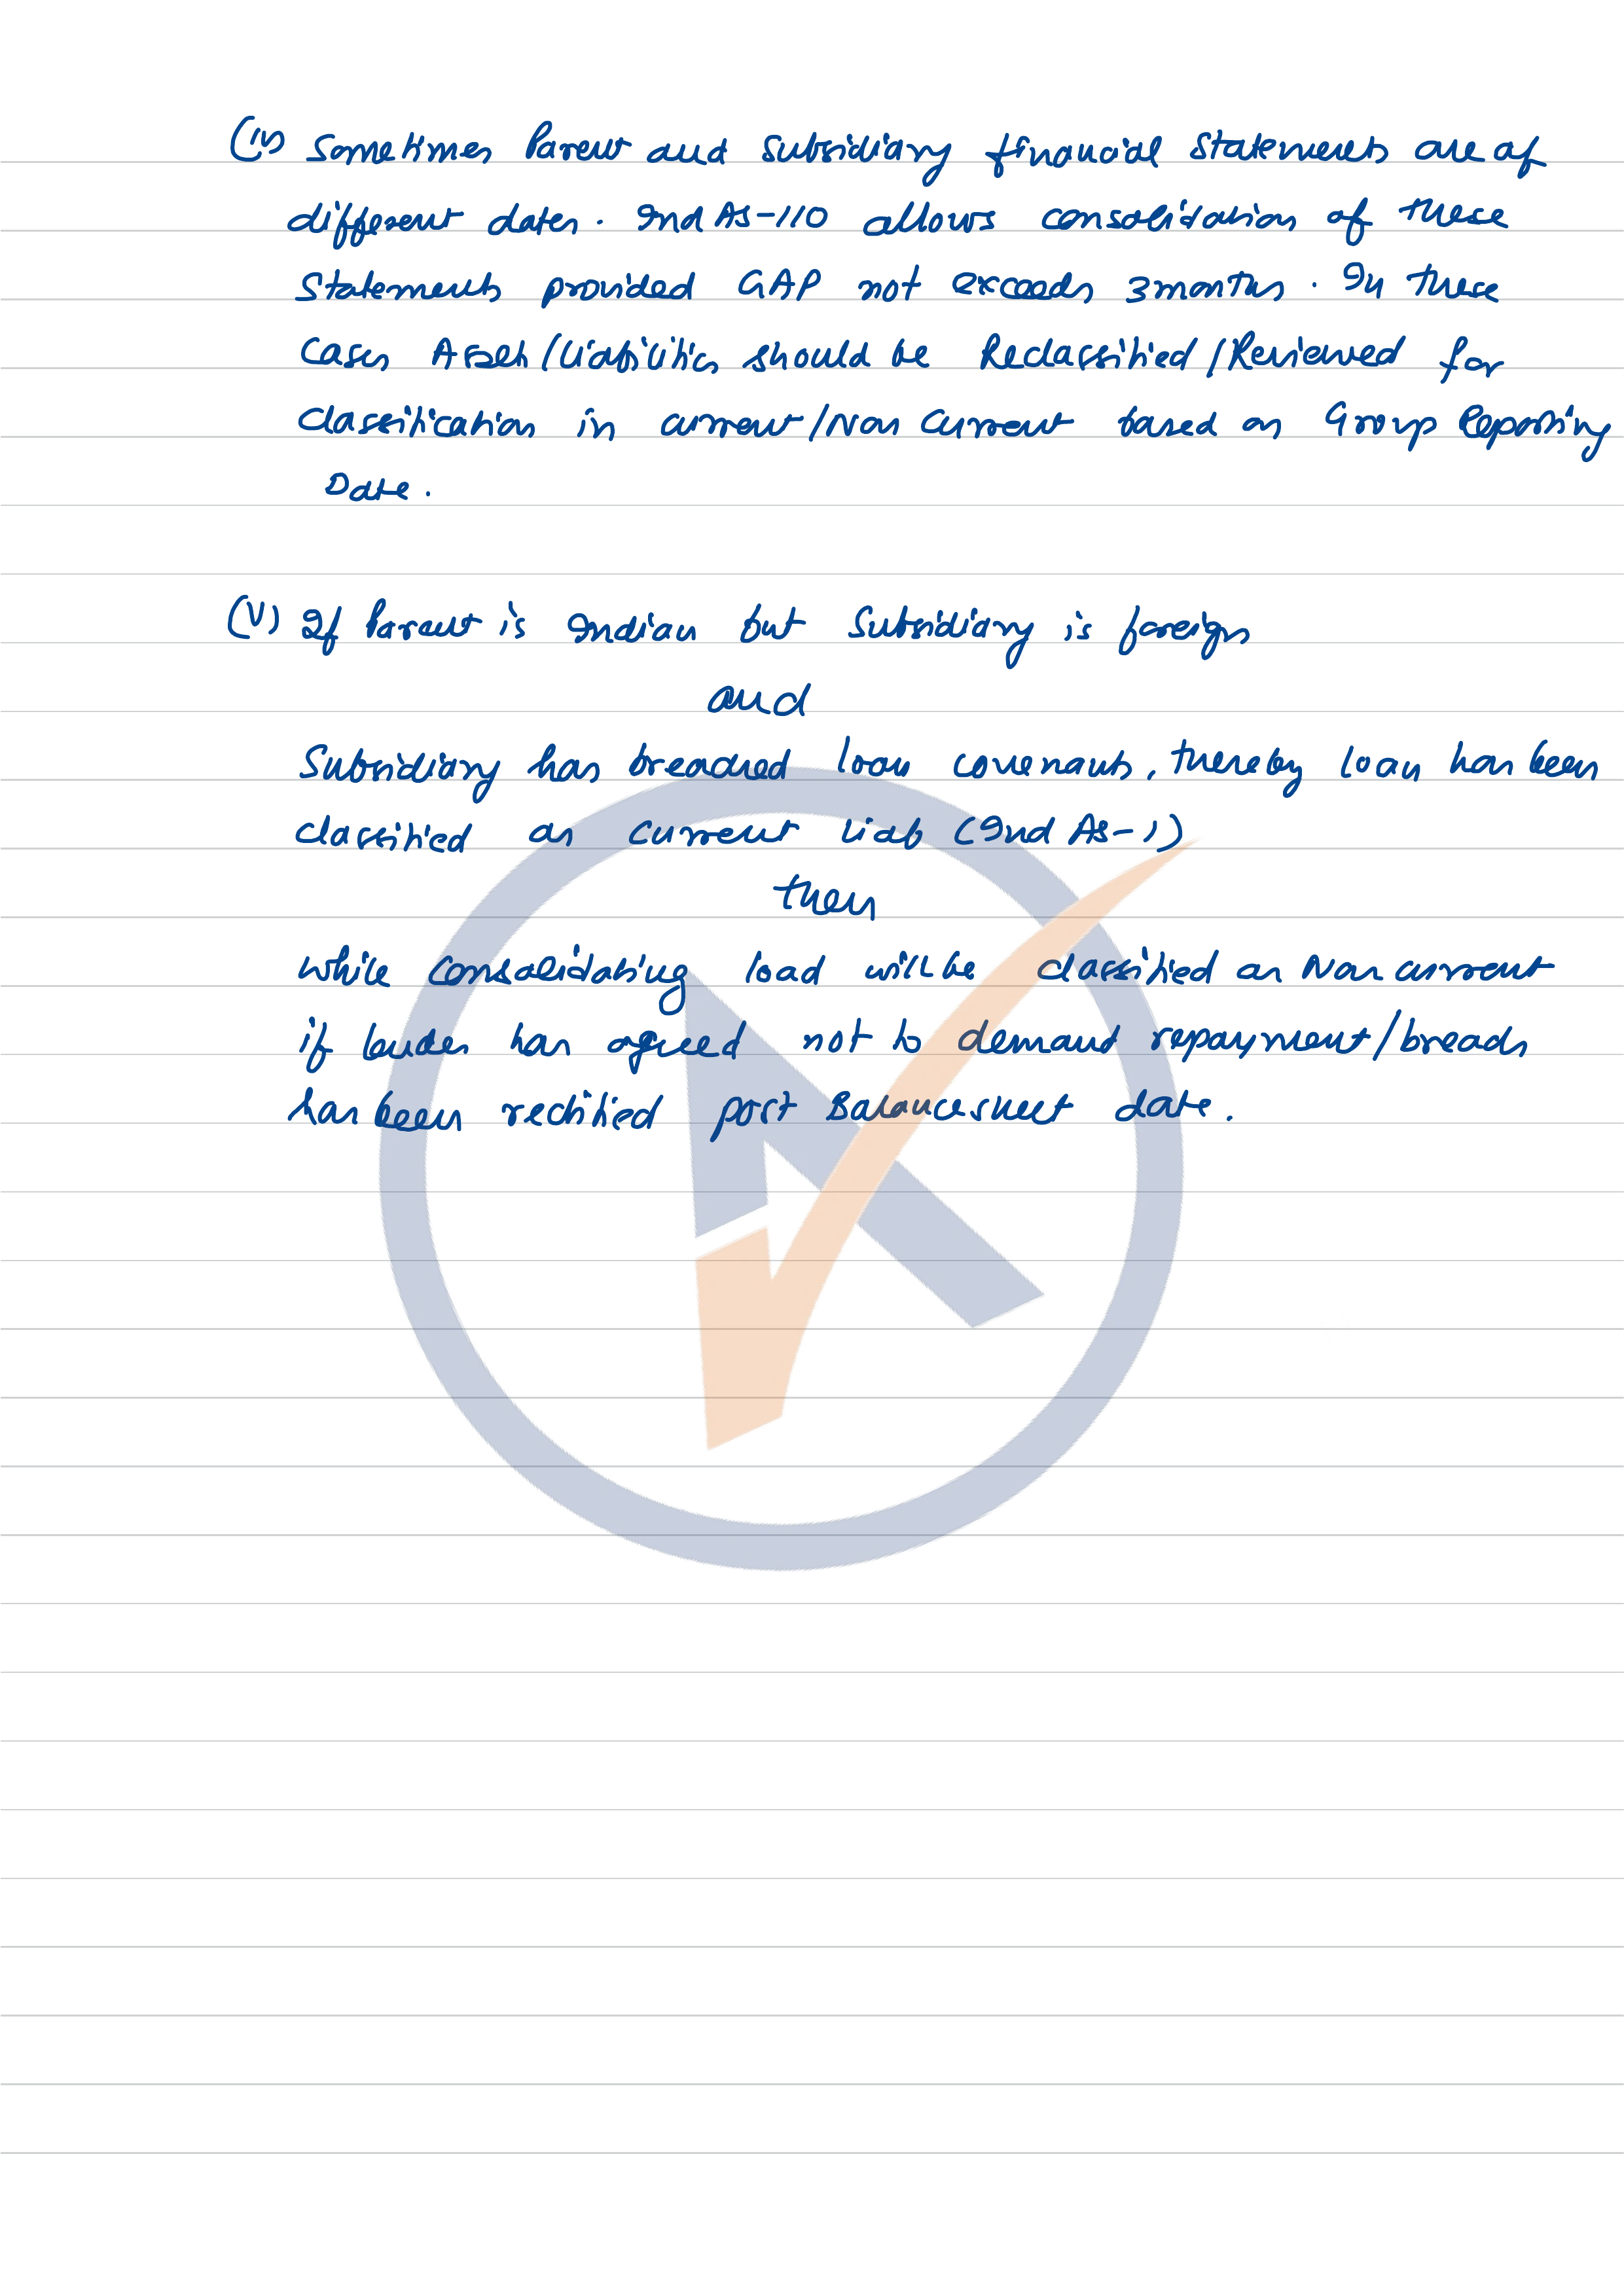 (iv) Sometimes Parent and Subsidiary financial statements are of
different dates. Ind AS-110 allows consolidation of these
Statements provided GAP not exceeds 3 months. In these
Cases Assets/Liabilities should be Reclassified/Reviewed for
classification in current/Non Current based on Group Reporting
Date.
(V) If Parent is Indian but Subsidiary is foreign
and
Subsidiary has breached loan covenants, thereby loan has been
classified as Current liab (Ind AS-1)
then
while consolidating load will be classified as Non current
if lender has agreed not to demand repayment/breach
has been rectified post Balancesheet date.